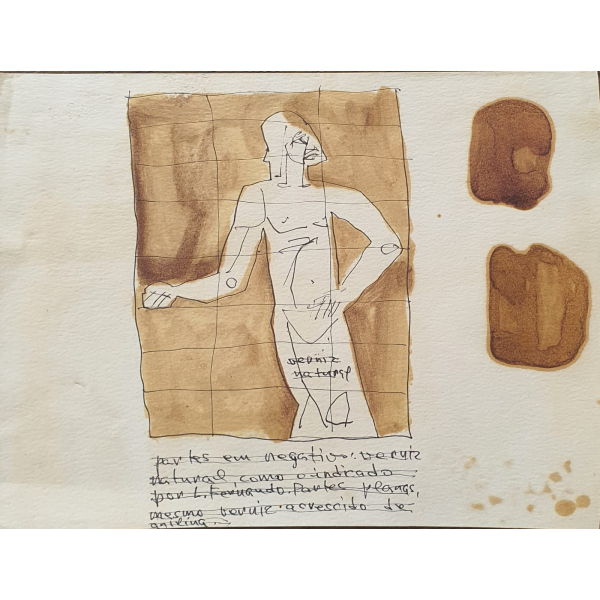 verniz
natural
partes em negativo: verniz
natural como indicado
por L. Fernando. Partes planas,
mesmo verniz acrescido de
anilina.